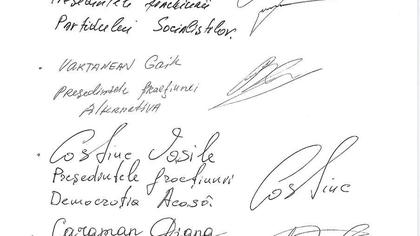 Președintele fracțiunii
Partidului Socialistilor.
Vartanean Gaik
Președintele fracțiunei
Alternativa
Costiuc Vasile
Președintele fracțiunei
Democrația Acasă
Costiuc
Caraman Diana